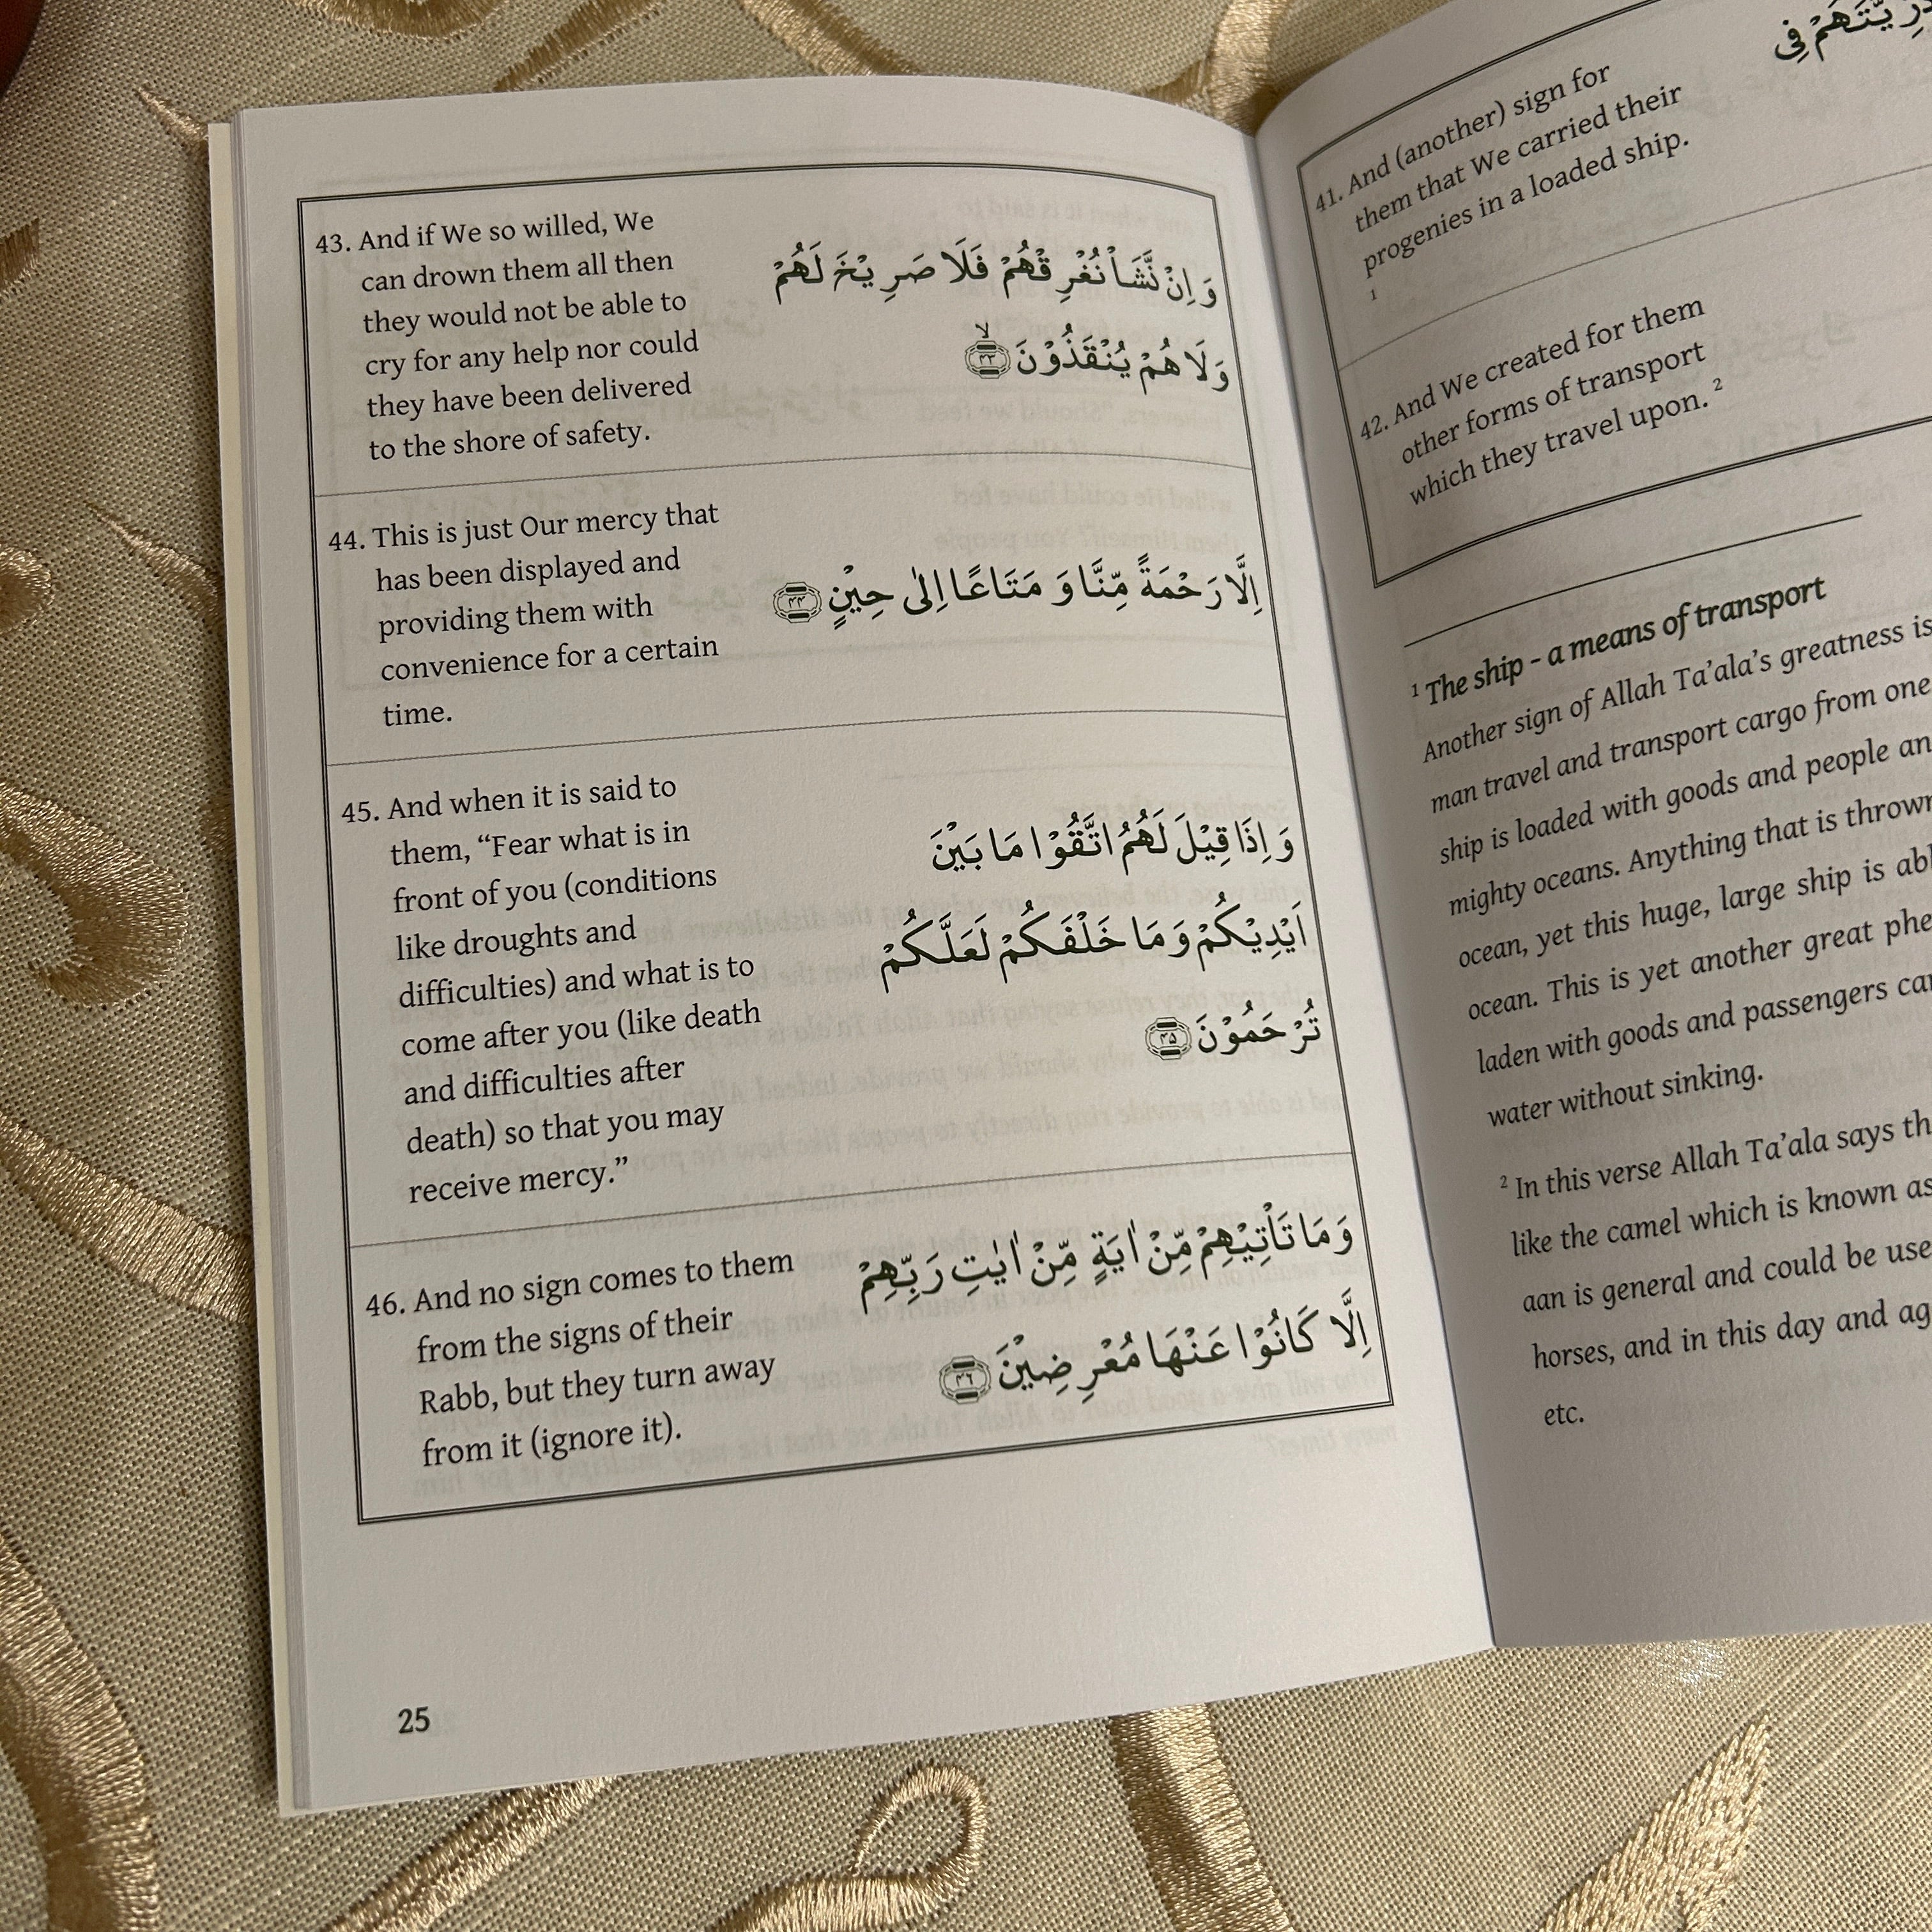 43. And if We so willed, We
can drown them all then
they would not be able to
cry for any help nor could
they have been delivered
to the shore of safety.
وَ اِنْ نَّشَاْ نُغْرِقْهُمْ فَلَا صَرِيْخَ لَهُمْ
وَلَا هُمْ يُنْقَذُوْنَ ﴿۴۳﴾ۙ
44. This is just Our mercy that
has been displayed and
providing them with
convenience for a certain
time.
اِلَّا رَحْمَةً مِّنَّا وَ مَتَاعًا اِلٰى حِيْنٍ ﴿۴۴﴾
45. And when it is said to
them, “Fear what is in
front of you (conditions
like droughts and
difficulties) and what is to
come after you (like death
and difficulties after
death) so that you may
receive mercy.”
وَ اِذَا قِيْلَ لَهُمُ اتَّقُوْا مَا بَيْنَ
اَيْدِيْكُمْ وَ مَا خَلْفَكُمْ لَعَلَّكُمْ
تُرْحَمُوْنَ ﴿۴۵﴾
46. And no sign comes to them
from the signs of their
Rabb, but they turn away
from it (ignore it).
وَ مَا تَاْتِيْهِمْ مِّنْ اٰيَةٍ مِّنْ اٰيٰتِ رَبِّهِمْ
اِلَّا كَانُوْا عَنْهَا مُعْرِضِيْنَ ﴿۴۶﴾
25
41. And (another) sign for
them that We carried their
progenies in a loaded ship.
1
فِى
42. And We created for them
other forms of transport
which they travel upon. 2
1 The ship - a means of transport
Another sign of Allah Ta’ala’s greatness is
man travel and transport cargo from one
ship is loaded with goods and people
mighty oceans. Anything that is
ocean, yet this huge, large ship is
ocean. This is yet another great
laden with goods and passengers
water without sinking.
2 In this verse Allah Ta’ala says
like the camel which is known as
aan is general and could be
horses, and in this day and
etc.